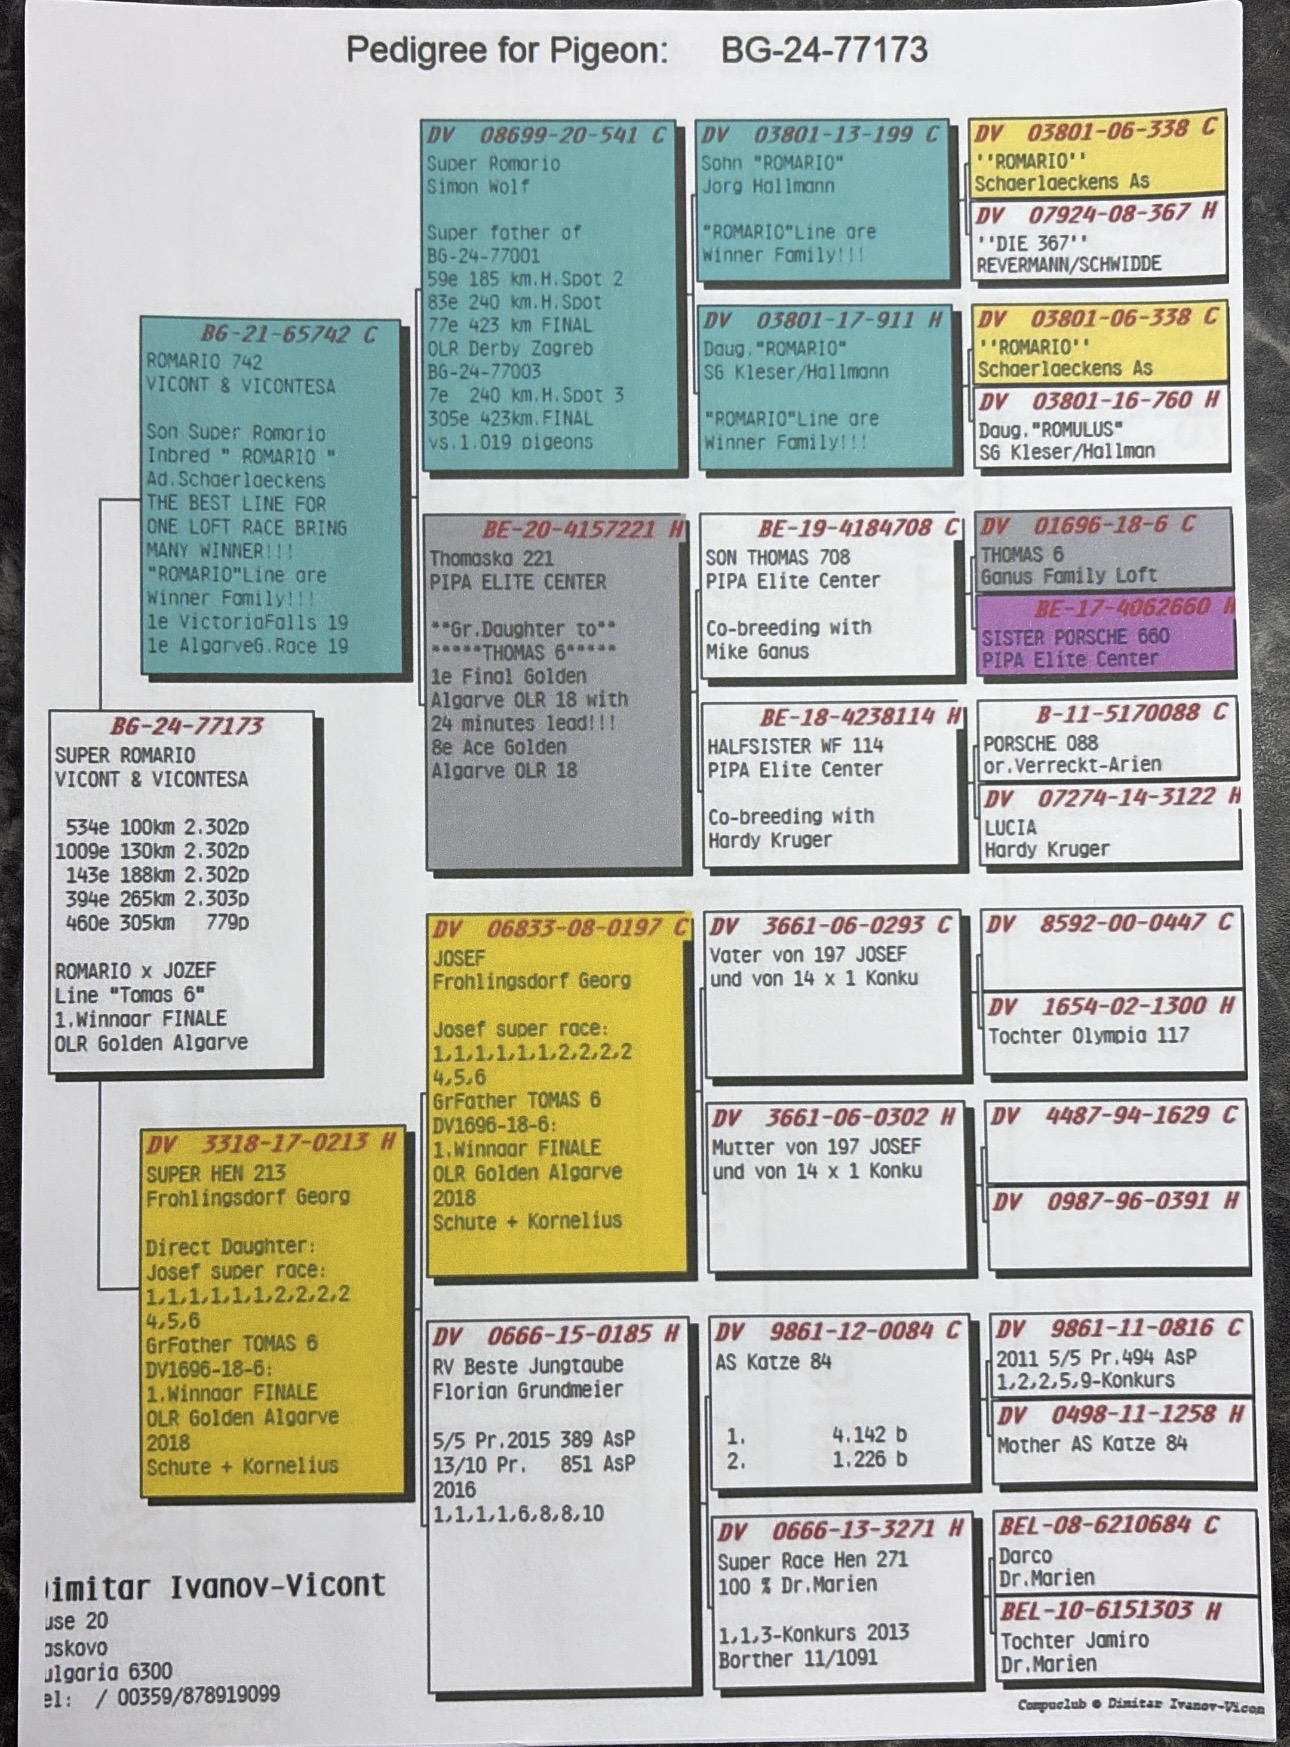 Pedigree for Pigeon: BG-24-77173
BG-24-77173
SUPER ROMARIO
VICONT & VICONTESA
534e 100km 2.302p
1009e 130km 2.302p
143e 188km 2.302p
394e 265km 2.303p
460e 305km 779p
ROMARIO x JOZEF
Line "Tomas 6"
1.Winnaar FINALE
OLR Golden Algarve
BG-21-65742 C
ROMARIO 742
VICONT & VICONTESA
Son Super Romario
Inbred " ROMARIO "
Ad.Schaerlaeckens
THE BEST LINE FOR
ONE LOFT RACE BRING
MANY WINNER!!!
"ROMARIO"Line are
Winner Family!!!
1e VictoriaFalls 19
1e AlgarveG.Race 19
DV 3318-17-0213 H
SUPER HEN 213
Frohlingsdorf Georg
Direct Daughter:
Josef super race:
1,1,1,1,1,1,2,2,2,2
4,5,6
GrFather TOMAS 6
DV1696-18-6:
1.Winnaar FINALE
OLR Golden Algarve
2018
Schute + Kornelius
DV 08699-20-541 C
Super Romario
Simon Wolf
Super father of
BG-24-77001
59e 185 km.H.Spot 2
83e 240 km.H.Spot
77e 423 km FINAL
OLR Derby Zagreb
BG-24-77003
7e 240 km.H.Spot 3
305e 423km.FINAL
vs.1.019 pigeons
BE-20-4157221 H
Thomaska 221
PIPA ELITE CENTER
**Gr.Daughter to**
*****THOMAS 6*****
1e Final Golden
Algarve OLR 18 with
24 minutes lead!!!
8e Ace Golden
Algarve OLR 18
DV 06833-08-0197 C
JOSEF
Frohlingsdorf Georg
Josef super race:
1,1,1,1,1,1,2,2,2,2
4,5,6
GrFather TOMAS 6
DV1696-18-6:
1.Winnaar FINALE
OLR Golden Algarve
2018
Schute + Kornelius
DV 0666-15-0185 H
RV Beste Jungtaube
Florian Grundmeier
5/5 Pr.2015 389 AsP
13/10 Pr. 851 AsP
2016
1,1,1,1,6,8,8,10
DV 03801-13-199 C
Sohn "ROMARIO"
Jorg Hallmann
"ROMARIO"Line are
Winner Family!!!
DV 03801-17-911 H
Daug."ROMARIO"
SG Kleser/Hallmann
"ROMARIO"Line are
Winner Family!!!
BE-19-4184708 C
SON THOMAS 708
PIPA Elite Center
Co-breeding with
Mike Ganus
BE-18-4238114 H
HALFSISTER WF 114
PIPA Elite Center
Co-breeding with
Hardy Kruger
DV 3661-06-0293 C
Vater von 197 JOSEF
und von 14 x 1 Konku
DV 3661-06-0302 H
Mutter von 197 JOSEF
und von 14 x 1 Konku
DV 9861-12-0084 C
AS Katze 84
1. 4.142 b
2. 1.226 b
DV 0666-13-3271 H
Super Race Hen 271
100 % Dr.Marien
1,1,3-Konkurs 2013
Borther 11/1091
DV 03801-06-338 C
''ROMARIO''
Schaerlaeckens As
DV 07924-08-367 H
''DIE 367''
REVERMANN/SCHWIDDE
DV 03801-06-338 C
''ROMARIO''
Schaerlaeckens As
DV 03801-16-760 H
Daug."ROMULUS"
SG Kleser/Hallman
DV 01696-18-6 C
THOMAS 6
Ganus Family Loft
BE-17-4062660 H
SISTER PORSCHE 660
PIPA Elite Center
B-11-5170088 C
PORSCHE 088
or.Verreckt-Arien
DV 07274-14-3122 H
LUCIA
Hardy Kruger
DV 8592-00-0447 C
DV 1654-02-1300 H
Tochter Olympia 117
DV 4487-94-1629 C
DV 0987-96-0391 H
DV 9861-11-0816 C
2011 5/5 Pr.494 AsP
1,2,2,5,9-Konkurs
DV 0498-11-1258 H
Mother AS Katze 84
BEL-08-6210684 C
Darco
Dr.Marien
BEL-10-6151303 H
Tochter Jamiro
Dr.Marien
imitar Ivanov-Vicont
use 20
askovo
ulgaria 6300
el: / 00359/878919099
Compuclub © Dimitar Ivanov-Vicon